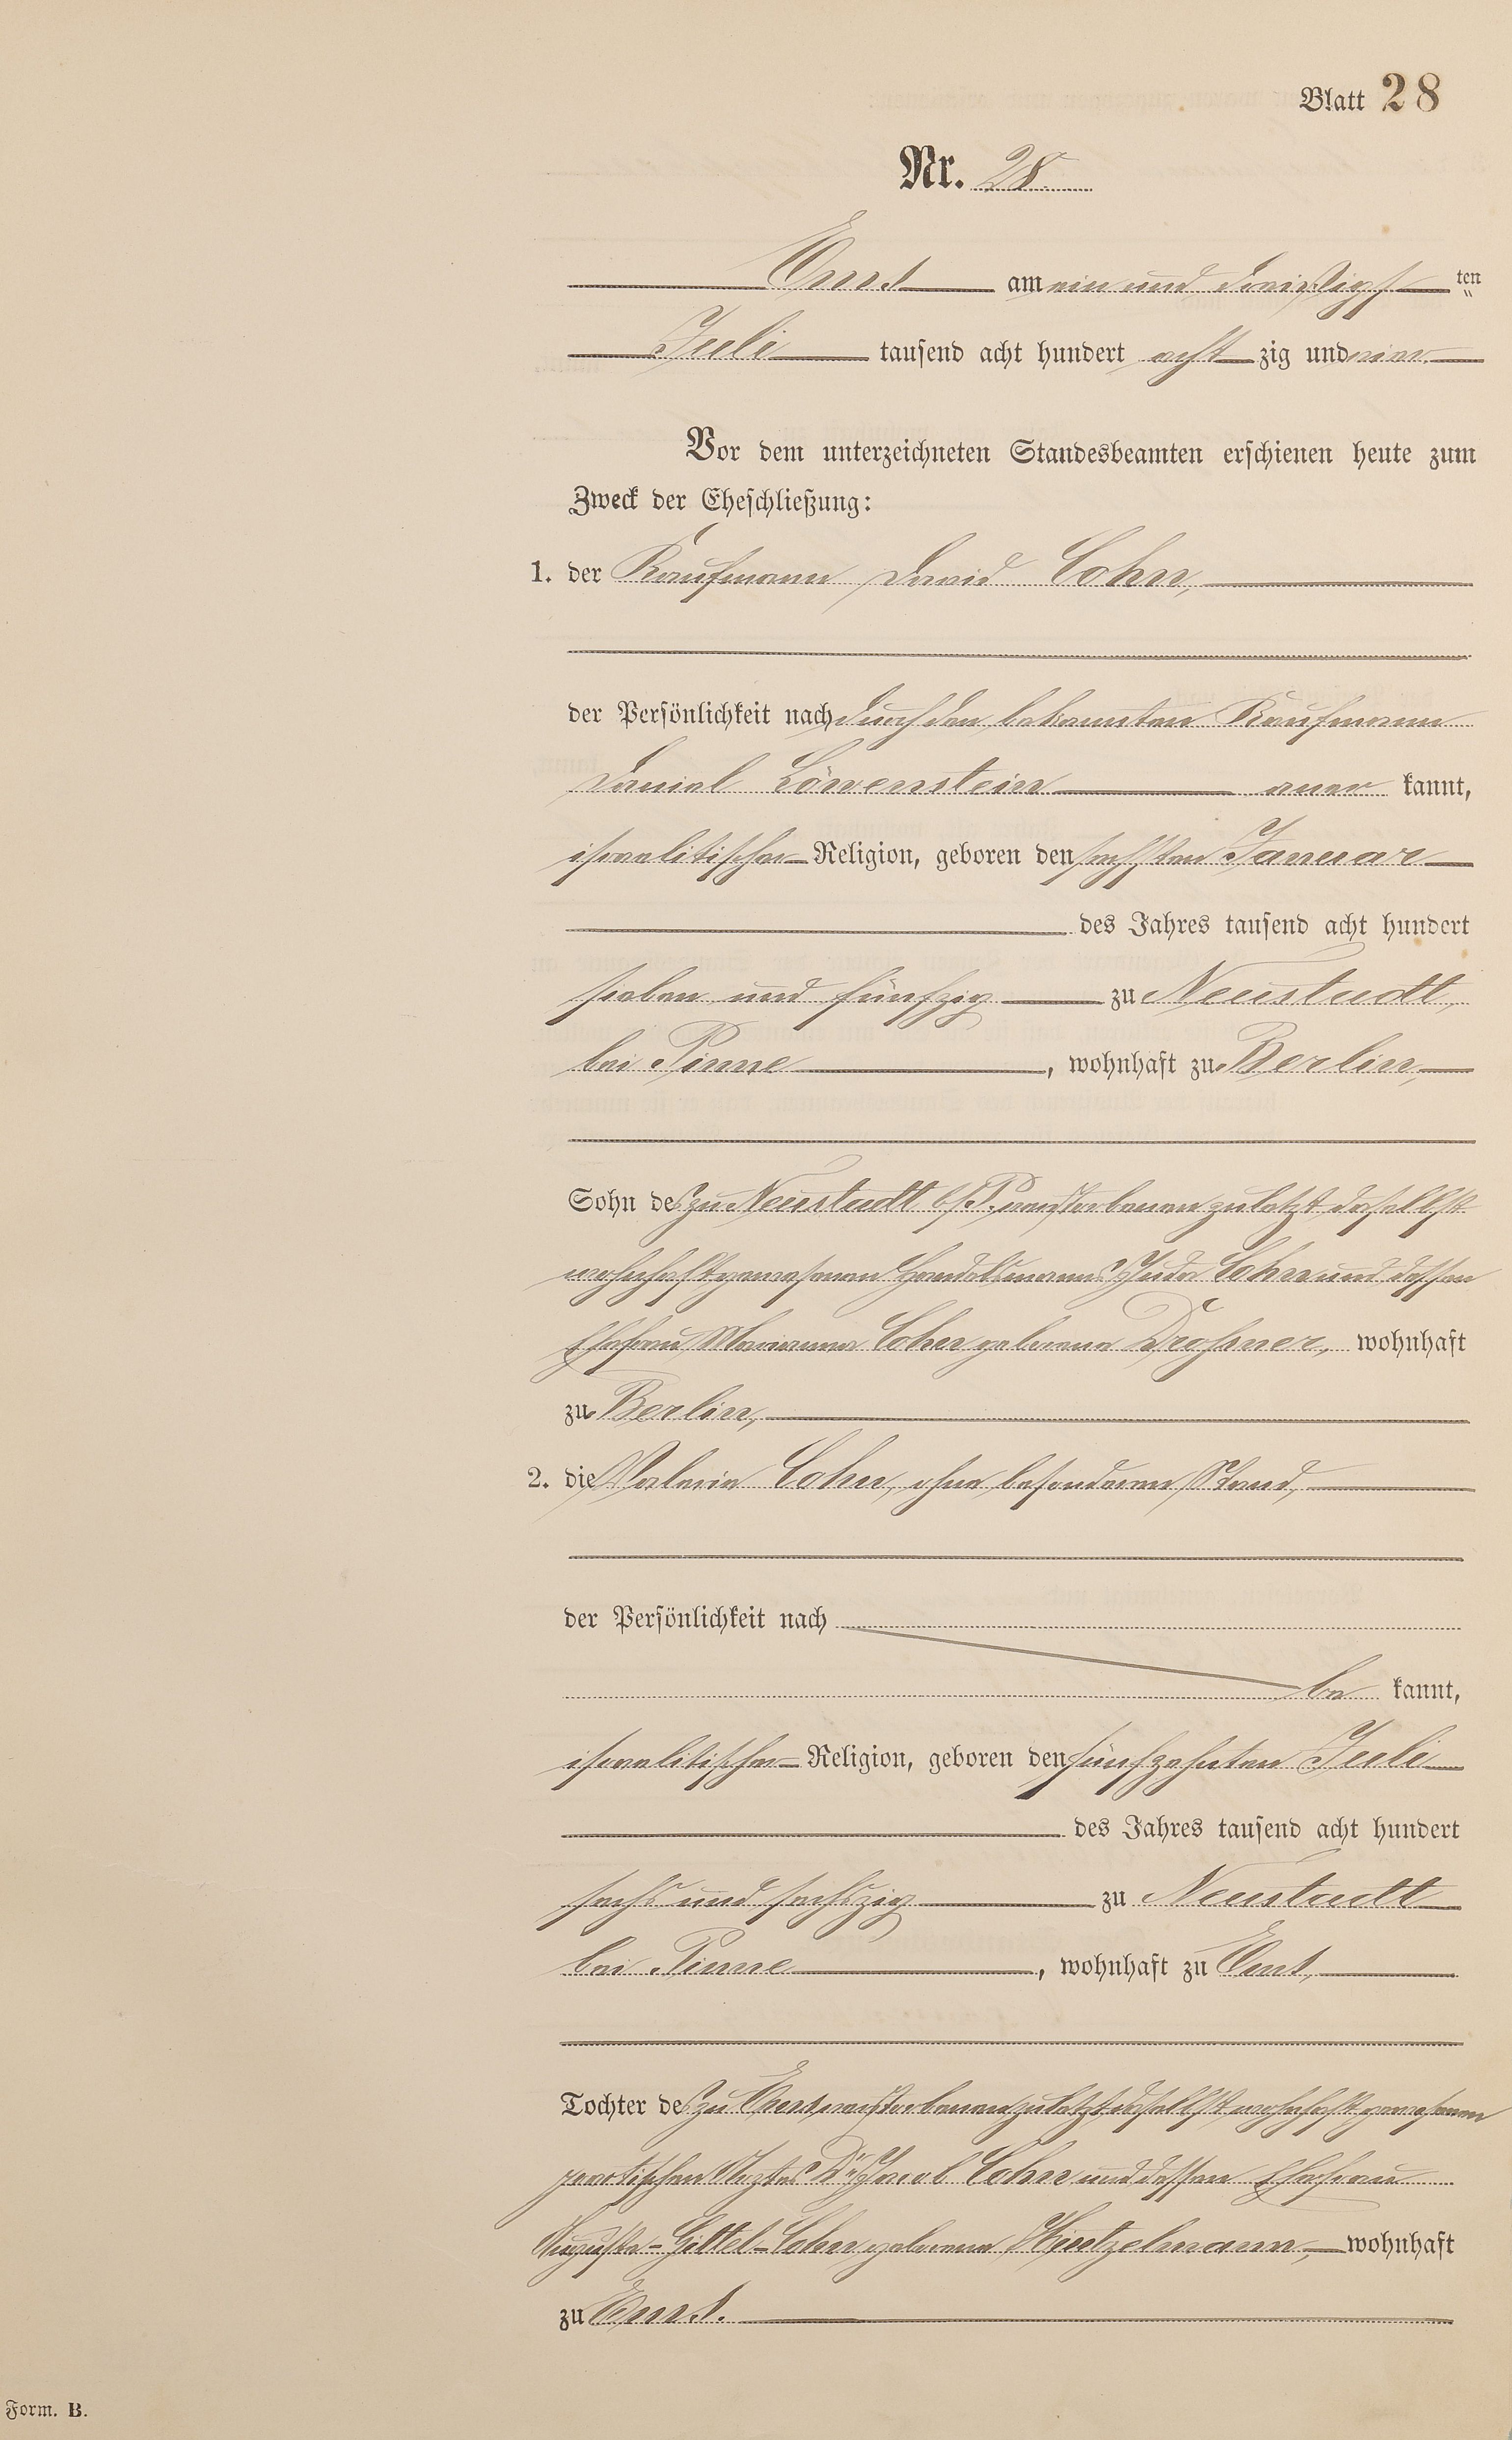 Blatt 28
Nr. 28.
Ems am ein und dreißigst ten
Juli tausend acht hundert acht zig und vier
Vor dem unterzeichneten Standesbeamten erschienen heute zum
Zweck der Eheschließung:
1. der Kaufmann David Cohn,
der Persönlichkeit nach durch den bekannten Kaufmann
Daniel Löwenstein aner kannt,
israelitischer Religion, geboren den sechsten Januar
des Jahres tausend acht hundert
sieben und fünfzig zu Neustadt,
bei Pinne, wohnhaft zu Berlin,
Sohn des zu Neustadt b/P. verstorbenen zuletzt daselbst
wohnhaft gewesenen Handelsmanns Juda Cohn und dessen
Ehefrau Marianna Cohn geborene Drossner, wohnhaft
zu Berlin,
2. die Valerie Cohn, ohne besonderen Stand,
der Persönlichkeit nach
be kannt,
israelitischer Religion, geboren den fünfzehnten Juli
des Jahres tausend acht hundert
sechs und sechszig zu Neustadt
bei Pinne, wohnhaft zu Ems,
Tochter des zu Ems verstorbenen zuletzt daselbst wohnhaft gewesenen
practischen Arztes Dr Jacob Cohn und dessen Ehefrau
Auguste-Gittel-Cohn geborene wohnhaft
zu Ems.
Form. B.